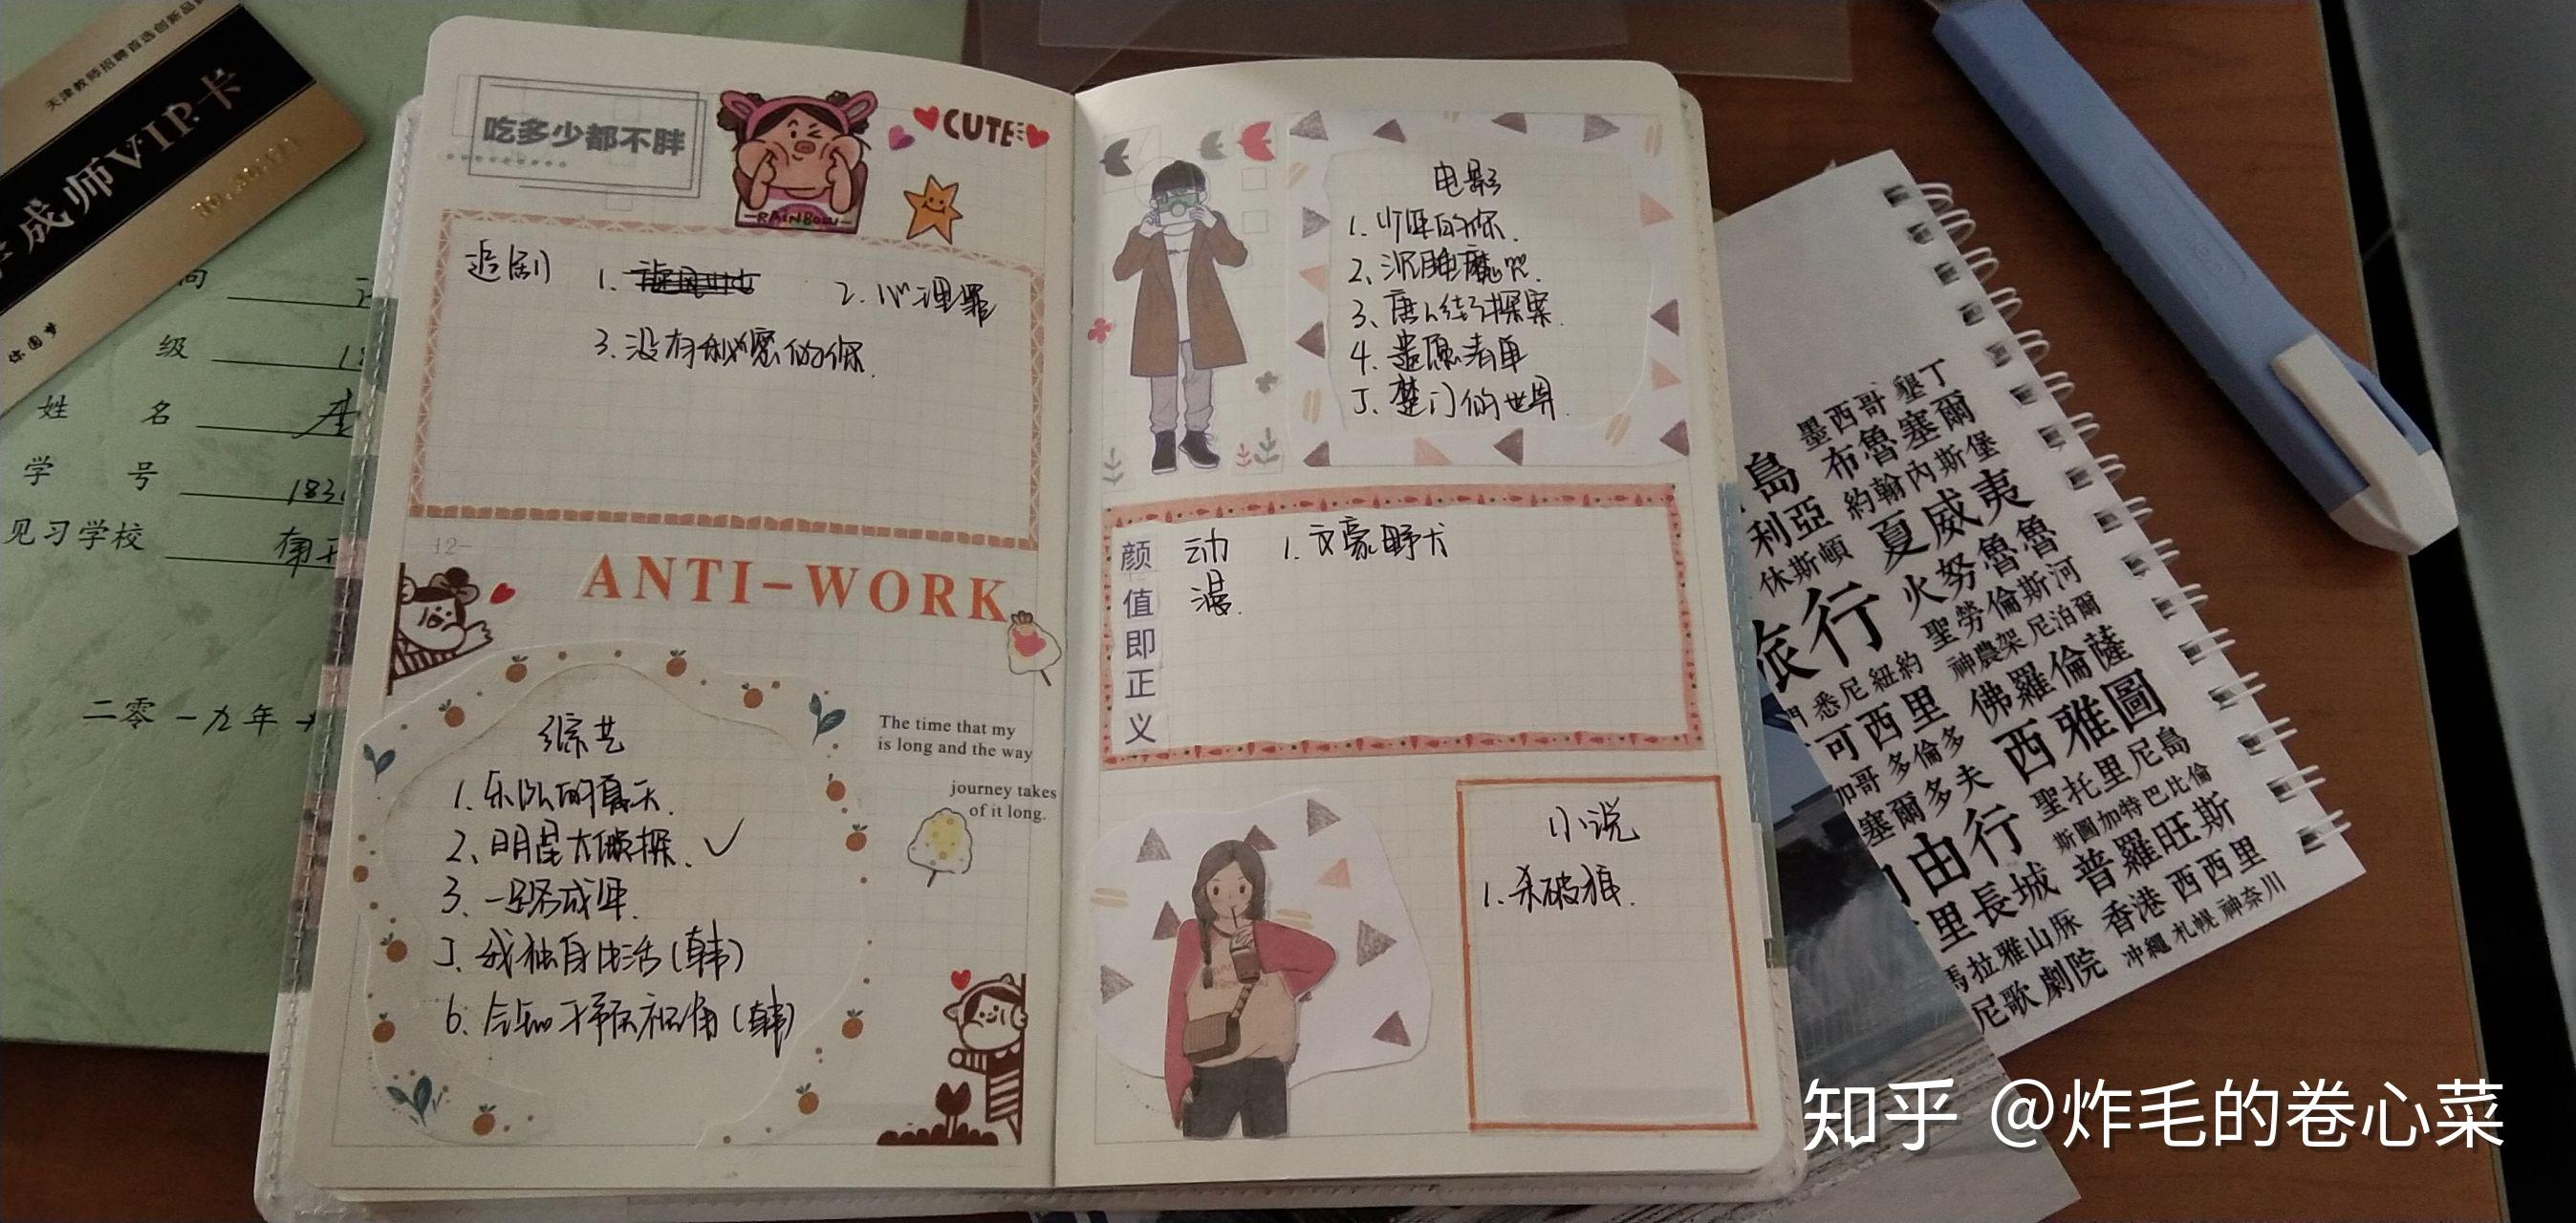 天津教师招聘首选创新品
成师VIP.卡
你圆梦
级
姓 名
学 号 183
见习学校
二零一九年十
吃多少都不胖
RAINBOW
CUTE
追剧 1. 2.心理罪
3.没有秘密的你.
12-
ANTI-WORK
The time that my
is long and the way
journey takes
of it long.
综艺
1.乐队的夏天.
2、明星大侦探. ✓
3.一路成年.
5.我独自生活(韩)
6.
电影
1.少年的你.
2、沉睡魔咒.
3、唐人街探案.
4.遗愿清单
5.楚门的世界.
颜值即正义
动漫. 1.文豪野犬
小说
1.杀破狼.
墨西哥 墾丁
島 布魯塞爾
利亞 約翰內斯堡
休斯頓 夏威夷
旅行 火努魯魯
聖勞倫斯河
悉尼 紐約 神農架 尼泊爾
可西里 佛羅倫薩
加哥 多倫多 西雅圖
塞爾多夫 聖托里尼島
由行 斯圖加特 巴比倫
里長城 普羅旺斯
馬拉雅山脉 香港 西西里
尼歌劇院 沖繩 札幌 神奈川
知乎 @炸毛的卷心菜